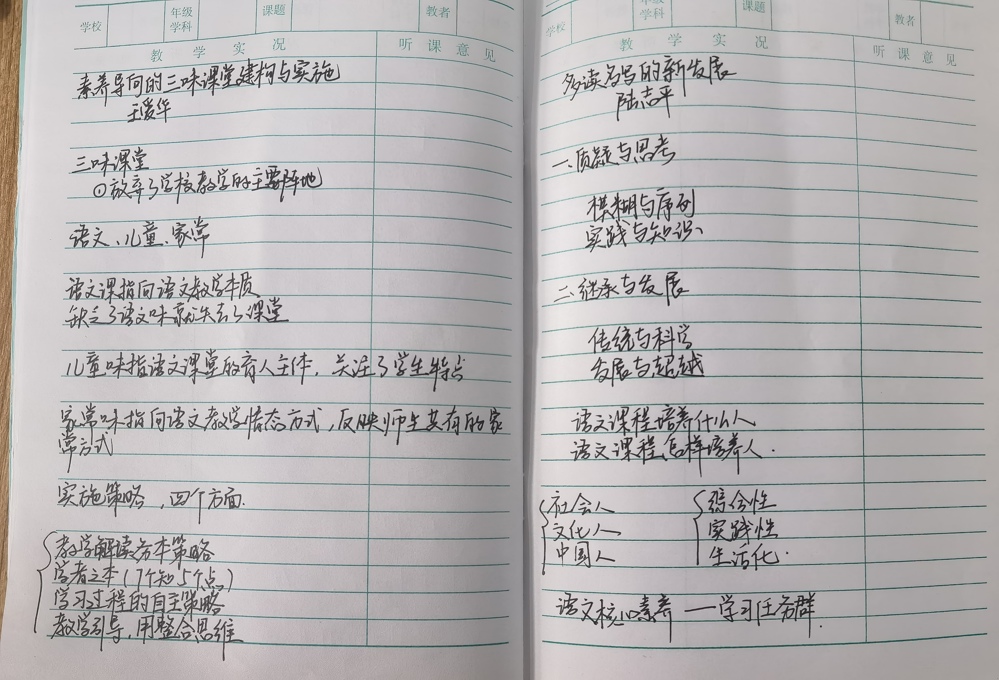 学校 年级学科 课题 教者
教学实况 听课意见
素养导向的三味课堂建构与实施
王爱华
三味课堂
①放弃了学校教学的主要阵地
语文、儿童、家常
语文课指向语文教学本质
缺乏了语文味就失去了课堂
儿童味指语文课堂的育人主体，关注了学生特点
家常味指向语文教学情态方式，反映师生共有的家
常方式
实施策略，四个方面.
教学解读为本策略
学者之本（7个知5个点）
学习过程的自主策略
教学引导，用整合思维
年级学科 课题 教者
教学实况 听课意见
多读多写的新发展
陆志平
一、质疑与思考
模糊与序列
实践与知识
二、继承与发展
传统与科学
发展与超越
语文课程培养什么人
语文课程怎样培养人.
社会人 综合性
文化人 实践性
中国人 生活化.
语文核心素养 — 学习任务群.